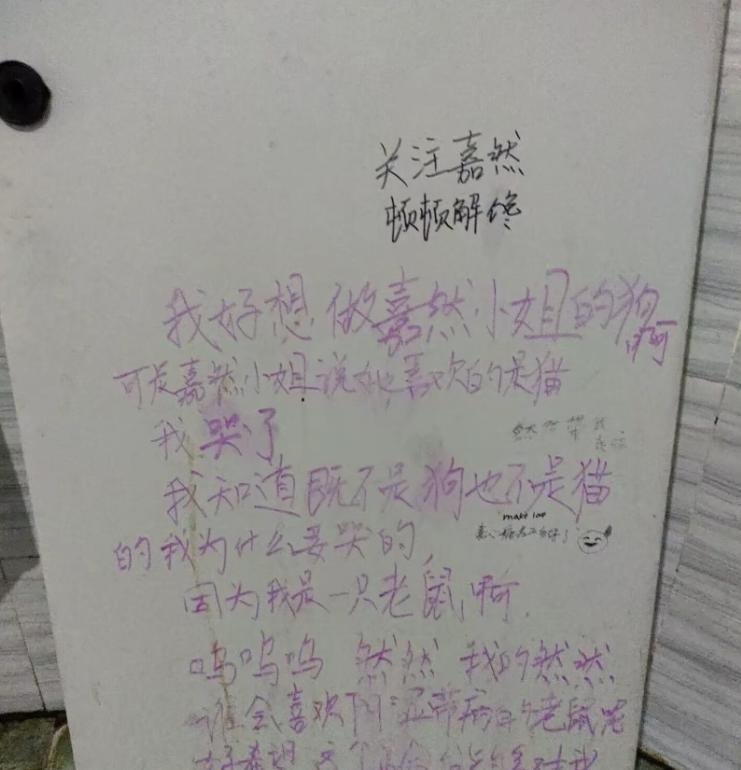 关注嘉然
顿顿解馋
我好想做嘉然小姐的狗啊
可是嘉然小姐说她喜欢的是猫
我哭了
我知道既不是狗也不是猫
make love
的我为什么要哭的
因为我是一只老鼠啊
呜呜呜 然然 我的然然
谁会喜欢阴湿带病的老鼠呢